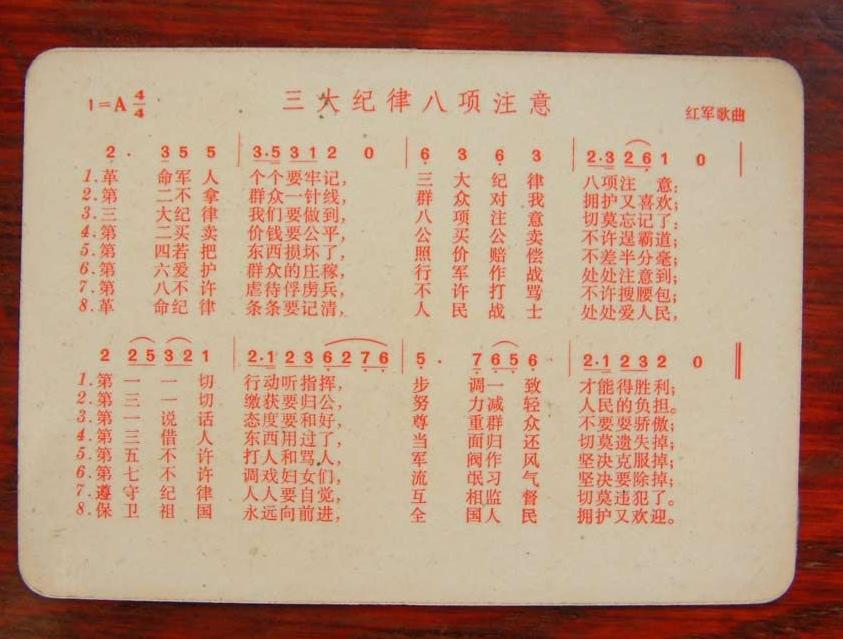 三大纪律八项注意
1=A 4/4
红军歌曲
2· 3 5 5 | 3·5 3 1 2 0 | 6 3 6 3 | 2·3 2 6 1 0 |
1.革命军人 个个要牢记, 三大纪律 八项注意;
2.第二不拿 群众一针线, 群众对我 拥护又喜欢;
3.三大纪律 我们要做到, 八项注意 切莫忘记了;
4.第二买卖 价钱要公平, 公买公卖 不许逞霸道;
5.第四若把 东西损坏了, 照价赔偿 不差半分毫;
6.第六爱护 群众的庄稼, 行军作战 处处注意到;
7.第八不许 虐待俘虏兵, 不许打骂 不许搜腰包;
8.革命纪律 条条要记清, 人民战士 处处爱人民,
2 2 5 3 2 1 | 2·1 2 3 6 2 7 6 | 5· 7 6 5 6 | 2·1 2 3 2 0 ‖
1.第一一切 行动听指挥, 步调一致 才能得胜利;
2.第三一切 缴获要归公, 努力减轻 人民的负担。
3.第一说话 态度要和好, 尊重群众 不要耍骄傲;
4.第三借人 东西用过了, 当面归还 切莫遗失掉;
5.第五不许 打人和骂人, 军阀作风 坚决克服掉;
6.第七不许 调戏妇女们, 流氓习气 坚决要除掉;
7.遵守纪律 人人要自觉, 互相监督 切莫违犯了。
8.保卫祖国 永远向前进, 全国人民 拥护又欢迎。